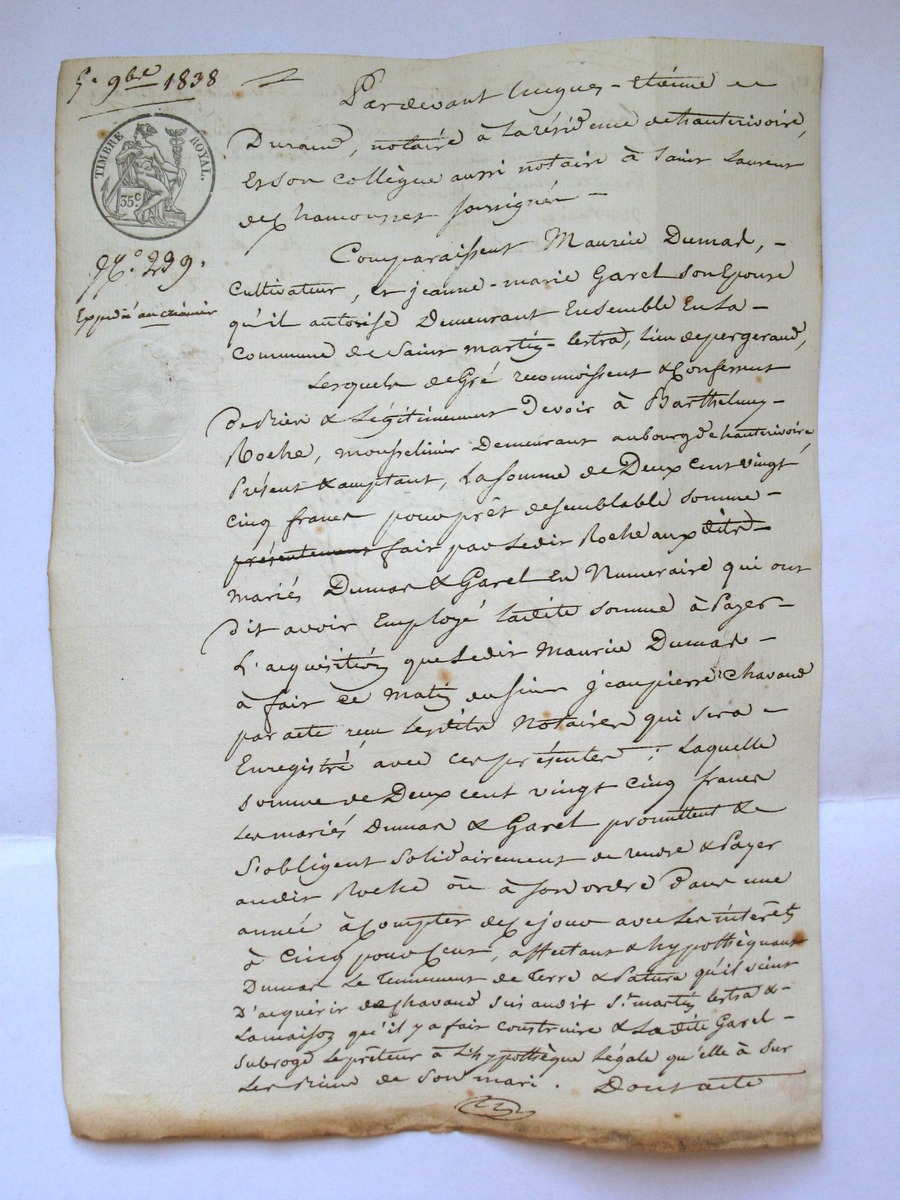 5. 9bre 1838
TIMBRE ROYAL.
35 c
N.º 299.
Expédié au créancier
Pardevant Jacques-Etienne
Durand, notaire à la résidence de hauterivoire,
Et son collègue aussi notaire à Saint Laurent
de Chamousset soussignés -
Comparaissent Maurice Dumas, -
Cultivateur, et jeanne-marie Garel son Epouse
qu'il autorise Demeurant Ensemble En la -
commune de Saint martin-lestra, lieu de pergeraud,
Lesquels de Gré reconnoissent & Confessent
De Bien & Légitimement Devoir à Barthelemy -
Roche, mousselinier Demeurant au bourg de hauterivoire
Présent & acceptant, La somme de Deux cent vingt
cinq francs pour prêt de semblable somme -
présentement fait par Ledit Roche aux dits -
mariés Dumas & Garel En Numeraire qui ont
dit avoir Employé ladite somme à Payer -
L'acquisition que Ledit Maurice Dumas -
à fait ce matin du sieur jean pierre Chavand
par acte reçu Lesdits Notaires qui sera -
Enregistré avec ces présentes ; Laquelle
somme de Deux cent vingt cinq francs
Les mariés Dumas & Garel promettent &
s'obligent solidairement de rendre & Payer
audit Roche ou à son ordre Dans une
année à Compter de Ce jour avec Les intérêts
à Cinq pour Cent, affectant & hypothèquant
Dumas Le Tennement de Terre & Pature qu'il vient
D'acquérir de Chavand sis audit St martin lestra & -
La maison qu'il y a fait construire & Ladite Garel -
subroge Le prêteur à L'hypothèque Légale qu'elle à sur
Les Biens de son mari. Dont acte